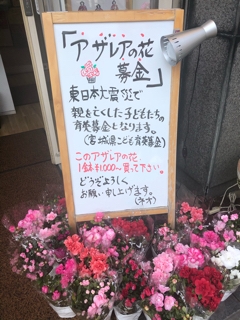 「アザレアの花
募金」
東日本大震災で
親を亡くした子どもたちの
育英募金となります。
(宮城県こども育英募金)
このアザレアの花、
1鉢¥1,000〜買って下さい。
どうぞよろしく
お願い申し上げます。
(ネオ)